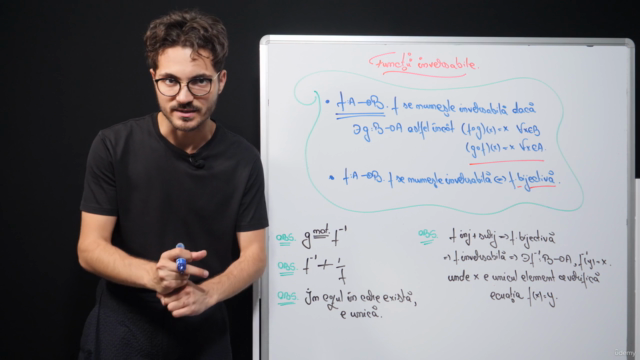 Funcții inversabile.
• f:A→B. f se numește inversabilă dacă
∃g:B→A astfel încât (f∘g)(x)=x ∀x∈B
(g∘f)(x)=x ∀x∈A.
• f:A→B. f se numește inversabilă ⇔ f bijectivă.
OBS. g not. f⁻¹
OBS. f⁻¹ ≠ 1/f
OBS. În cazul în care există,
e unică.
OBS. f inj + surj → f bijectivă
→ f inversabilă → ∃f⁻¹:B→A, f⁻¹(y)=x
unde x e unicul element ce verifică
ecuația f(x)=y.
Udemy